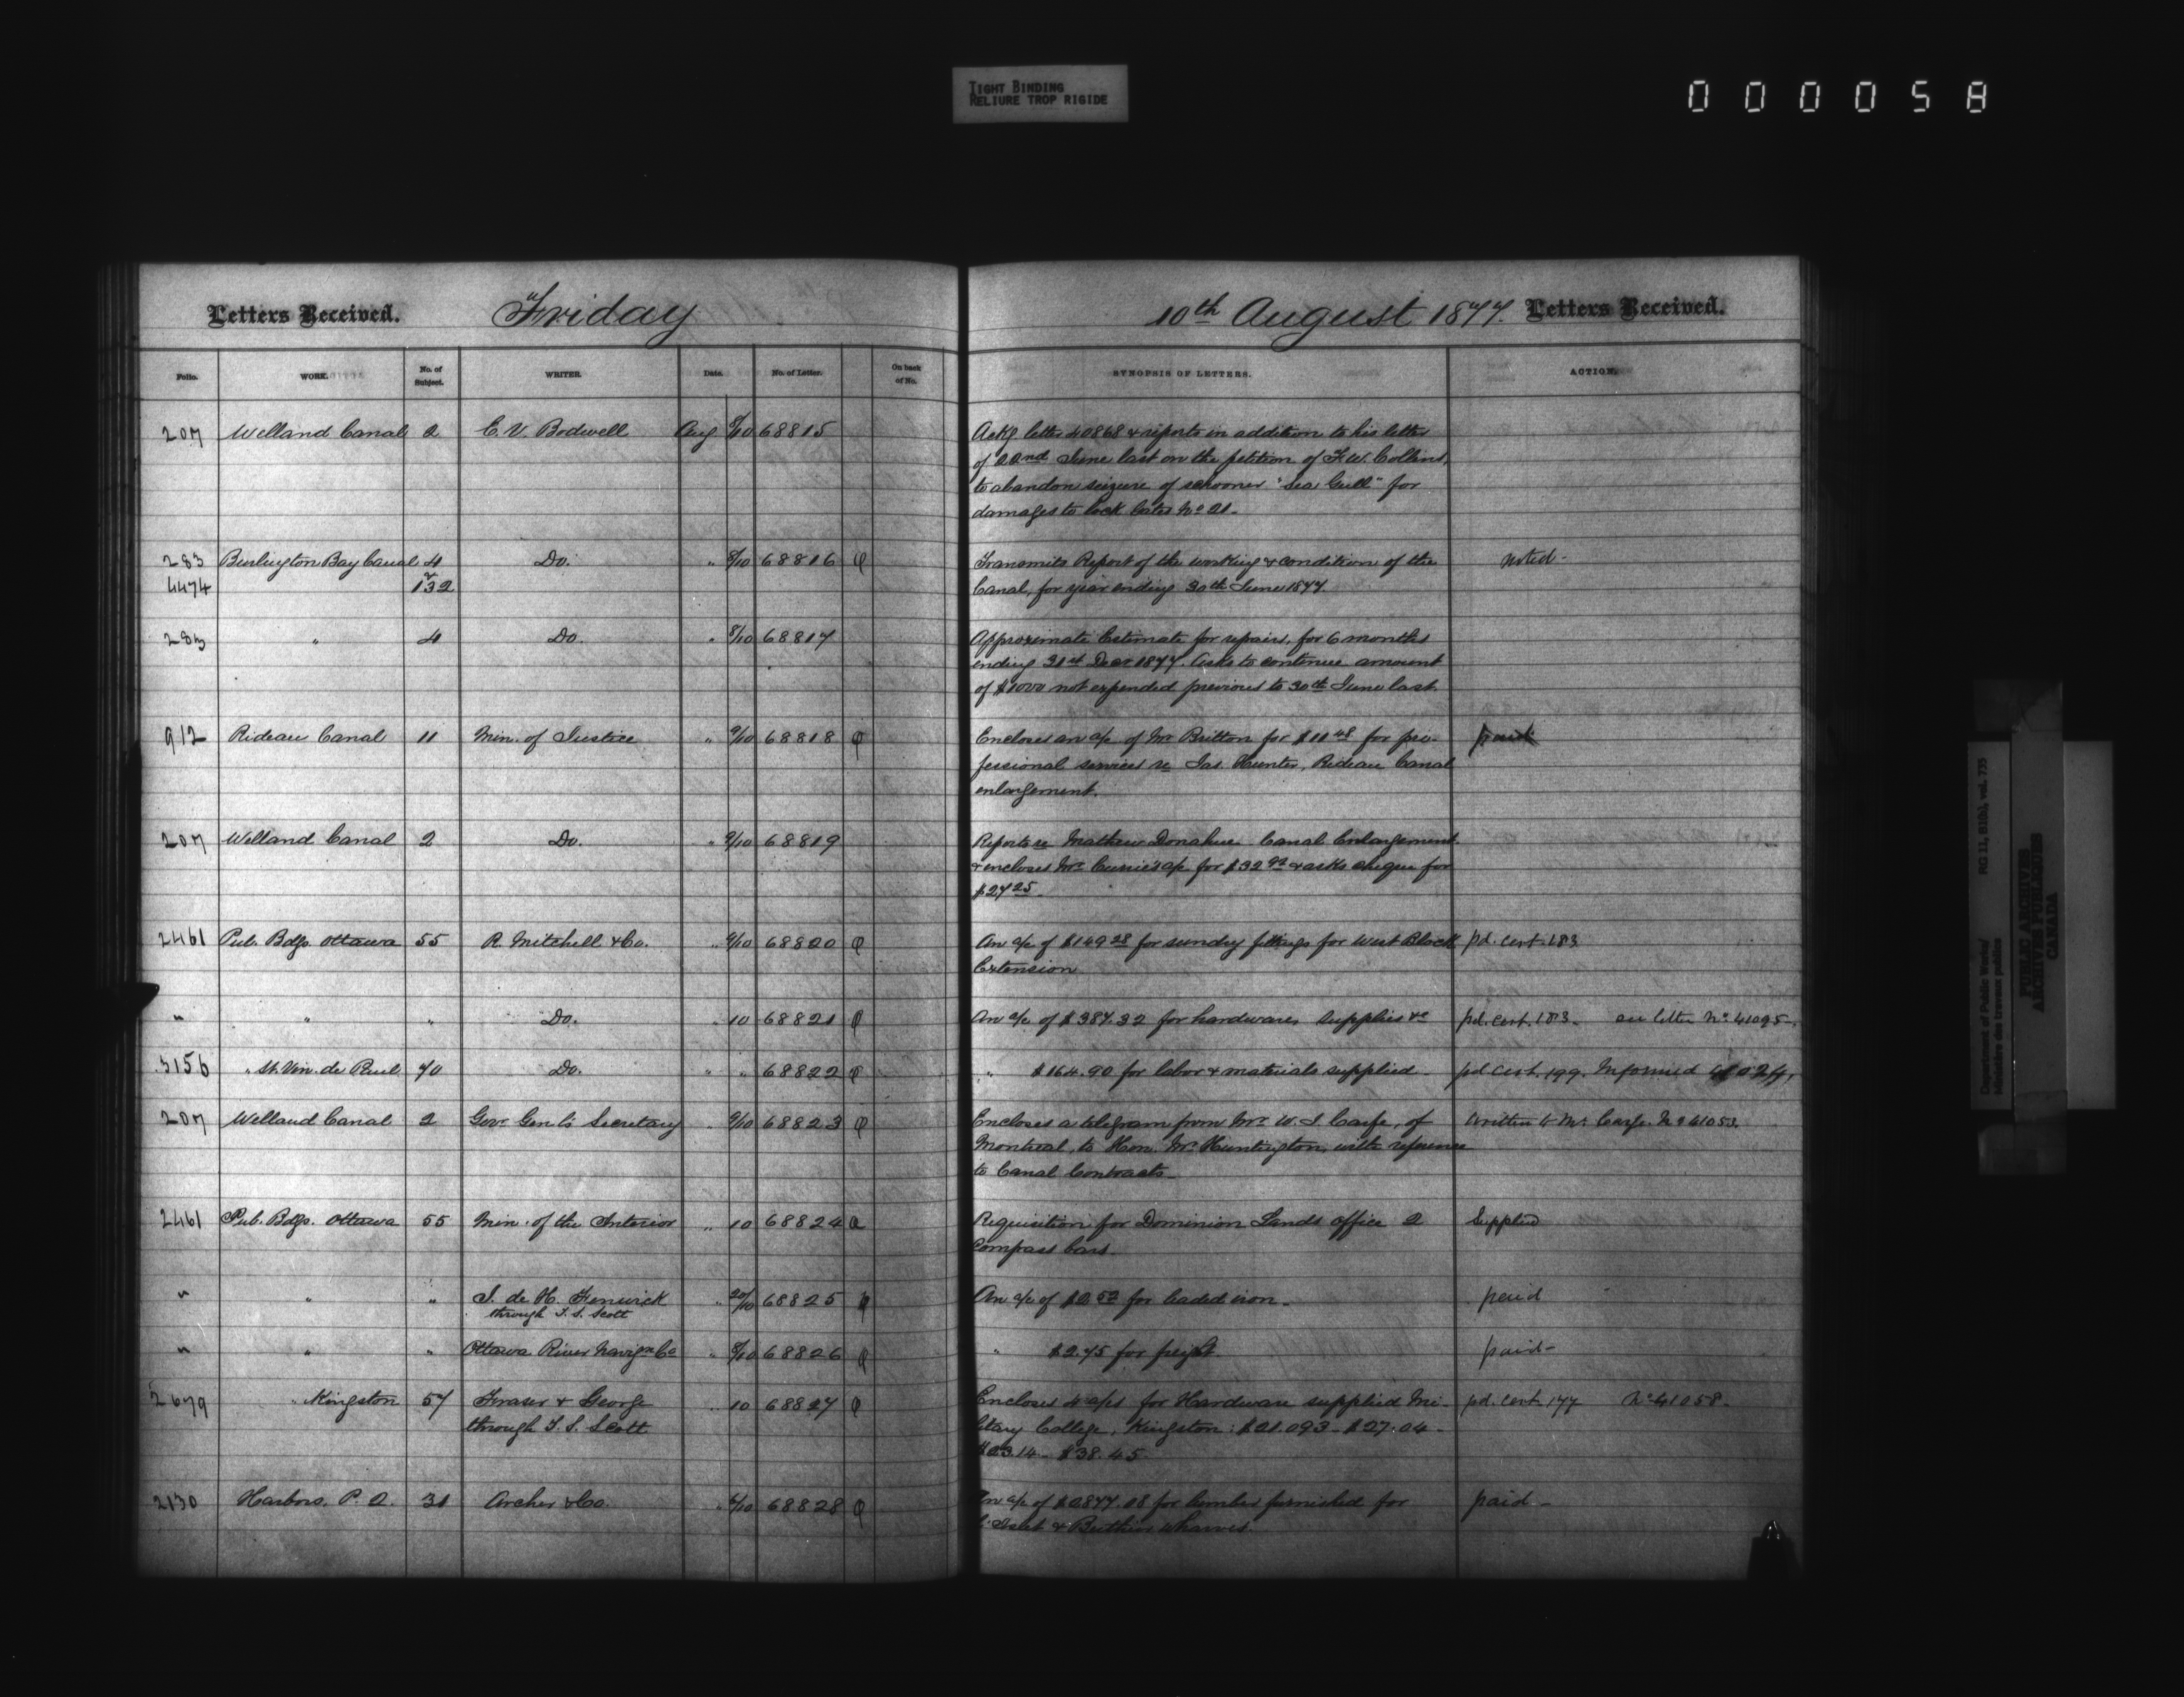 TIGHT BINDING
RELIURE TROP RIGIDE
000058
Letters Received. Friday 10th August 1877. Letters Received.
Folio. WORK. No. of Subject. WRITER. Date. No. of Letter. On back of No. SYNOPSIS OF LETTERS. ACTION.
207 Welland Canal 2 E. V. Bodwell Aug 8/10 68815 Ackg letter 40868 & reports in addition to his letter
of 22nd June last on the petition of F. W. Collins,
to abandon seizure of schooner "Sea Gull" for
damages to Lock Gates No 21.
283 Burlington Bay Canal 4 Do. " 8/10 68816 φ Transmits Report of the working & condition of the noted-
4474 132 Canal, for year ending 30th June 1877.
283 " 4 Do. " 8/10 68817 Approximate Estimate for repairs, for 6 months
ending 31st Decr 1877. Asks to continue amount
of $1000 not expended previous to 30th June last
912 Rideau Canal 11 Min. of Justice " 9/10 68818 φ Encloses an a/c of Mr Britton for $11 48 for pro- paid
fessional services re Jas. Hunter, Rideau Canal
enlargement.
207 Welland Canal 2 Do. " 9/10 68819 Reports re Mathew Donahue Canal Enlargement
& encloses Mr Currie's a/c for $32 92 & asks cheque for
$27 25
2461 Pub. Bdgs. Ottawa 55 R. Mitchell & Co. " 9/10 68820 φ An a/c of $149 28 for sundry fittings for West Block pd. cert. 183
Extension
" " " Do. 10 68821 φ An a/c of $387.32 for hardware supplies &c pd. cert. 183. see letter No 41095.
3156 " St. Vin. de Paul 70 Do. " " 68822 φ " $164.90 for labor & materials supplied - pd cert. 199. Informed
207 Welland Canal 2 Govr Genl's Secretary " 9/10 68823 φ Encloses a telegram from Mr W. J. of Written to Mr No 41053.
Montreal, to Hon. Mr Huntington, with reference
to Canal Contracts -
2461 Pub. Bdgs. Ottawa 55 Min. of the Interior " 10 68824 Requisition for Dominion Lands Office 2 Supplied
compass bars
" " " J. de H. Fenwick " 20/10 68825 φ An a/c of $2 52 for leaded iron. paid
through T. S. Scott
" " " Ottawa River Navign Co " 8/10 68826 φ " $2.75 for freight paid-
2679 " Kingston 57 Fraser & George " 10 68827 φ Encloses 4 a/cs for Hardware supplied Mi- pd. cert. 177 No 41058.
through T. S. Scott litary College, Kingston: $21.093 - $27.04 -
$23.14 - $38.45
2130 Harbors, P. Q. 31 Archer & Co. " 68828 φ An a/c of $2877.08 for lumber furnished for paid -
L'Islet & Berthier wharves.
Department of Public Works/
Ministère des travaux publics
RG 11, B1(b), vol. 735
PUBLIC ARCHIVES
ARCHIVES PUBLIQUES
CANADA